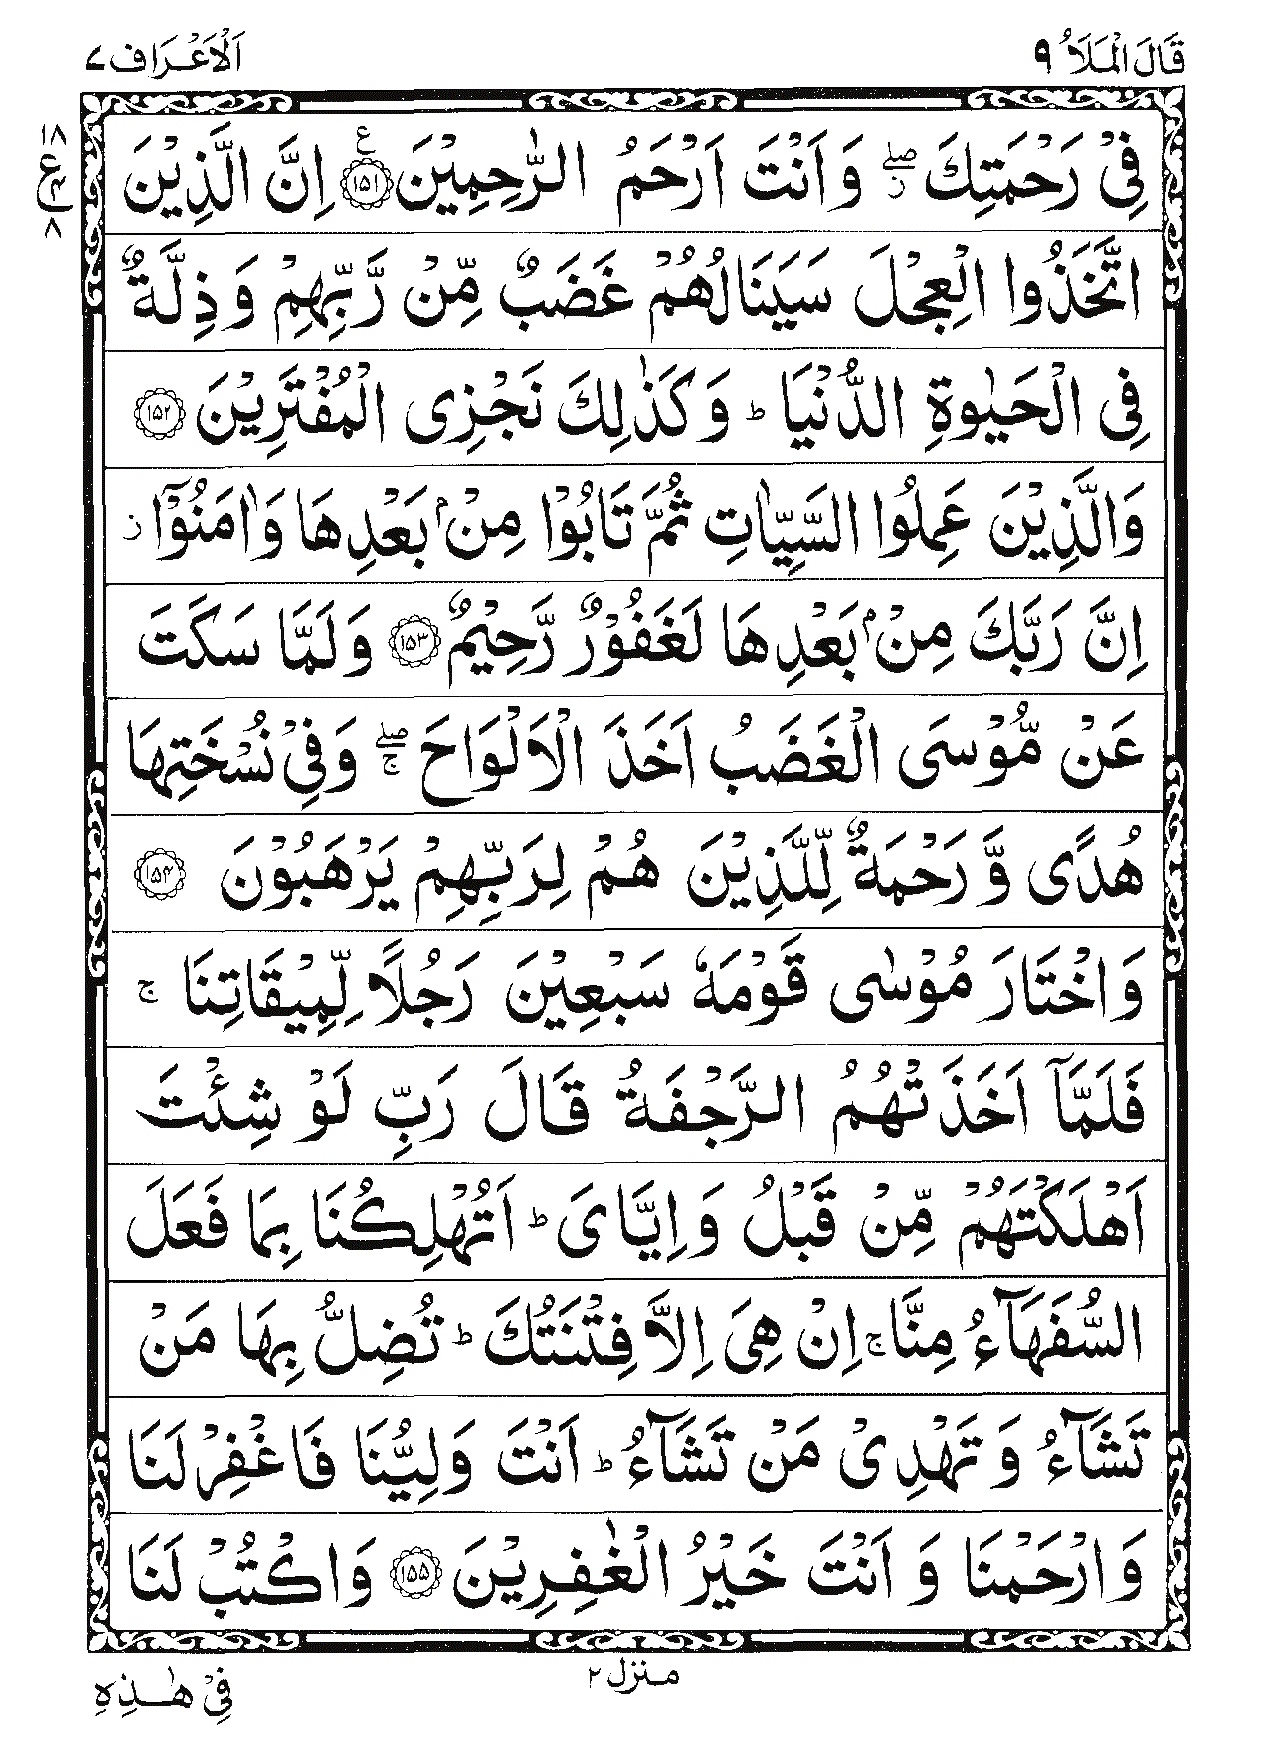 قَالَ الْمَلَاُ ٩
اَلْاَعْرَاف ٧
١٨
ع
٤
٨
فِیْ رَحْمَتِكَ ۖز وَ اَنْتَ اَرْحَمُ الرّٰحِمِیْنَ ﴿١٥١﴾ ع اِنَّ الَّذِیْنَ
اتَّخَذُوا الْعِجْلَ سَیَنَالُهُمْ غَضَبٌ مِّنْ رَّبِّهِمْ وَ ذِلَّةٌ
فِی الْحَیٰوةِ الدُّنْیَا ؕ وَ كَذٰلِكَ نَجْزِی الْمُفْتَرِیْنَ ﴿١٥٢﴾
وَالَّذِیْنَ عَمِلُوا السَّیِّاٰتِ ثُمَّ تَابُوْا مِنْۢ بَعْدِهَا وَاٰمَنُوْۤا ز
اِنَّ رَبَّكَ مِنْۢ بَعْدِهَا لَغَفُوْرٌ رَّحِیْمٌ ﴿١٥٣﴾ وَلَمَّا سَكَتَ
عَنْ مُّوْسَی الْغَضَبُ اَخَذَ الْاَلْوَاحَ ۖج وَفِیْ نُسْخَتِهَا
هُدًی وَّ رَحْمَةٌ لِّلَّذِیْنَ هُمْ لِرَبِّهِمْ یَرْهَبُوْنَ ﴿١٥٤﴾
وَاخْتَارَ مُوْسٰی قَوْمَهٗ سَبْعِیْنَ رَجُلًا لِّمِیْقَاتِنَا ج
فَلَمَّاۤ اَخَذَتْهُمُ الرَّجْفَةُ قَالَ رَبِّ لَوْ شِئْتَ
اَهْلَكْتَهُمْ مِّنْ قَبْلُ وَاِیَّایَ ؕ اَتُهْلِكُنَا بِمَا فَعَلَ
السُّفَهَآءُ مِنَّا ج اِنْ هِیَ اِلَّا فِتْنَتُكَ ؕ تُضِلُّ بِهَا مَنْ
تَشَآءُ وَ تَهْدِیْ مَنْ تَشَآءُ ؕ اَنْتَ وَلِیُّنَا فَاغْفِرْ لَنَا
وَ ارْحَمْنَا وَ اَنْتَ خَیْرُ الْغٰفِرِیْنَ ﴿١٥٥﴾ وَاكْتُبْ لَنَا
منزل ٢
فِیْ هٰذِهِ